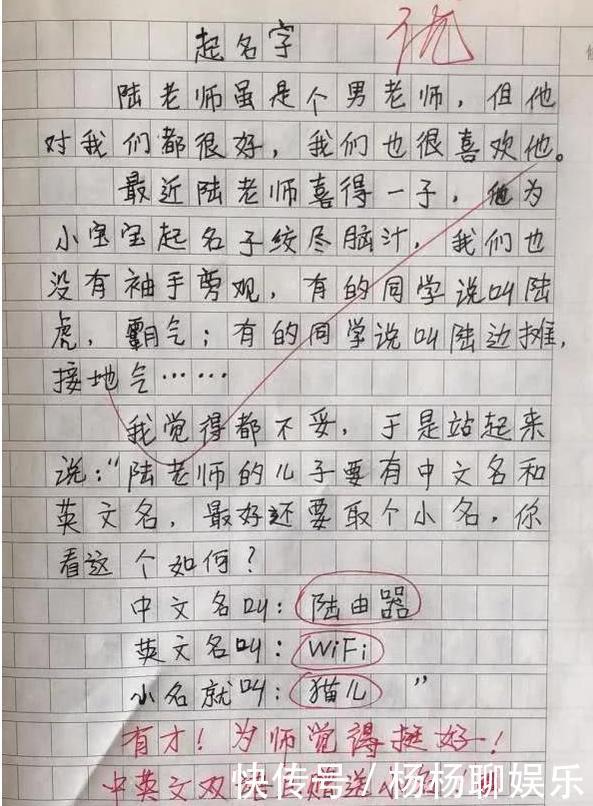 起名字
优
陆老师虽是个男老师，但他
对我们都很好，我们也很喜欢他。
最近陆老师喜得一子，他为
小宝宝起名子绞尽脑汁，我们也
没有袖手旁观，有的同学说叫陆
虎，霸气；有的同学说叫陆边摊，
接地气……
我觉得都不妥，于是站起来
说：“陆老师的儿子要有中文名和
英文名，最好还要取个小名，你
看这个如何？
中文名叫：陆由器
英文名叫：WiFi
小名就叫：猫儿”
有才！为师觉得挺好！
中英文双
快传号／杨杨聊娱乐